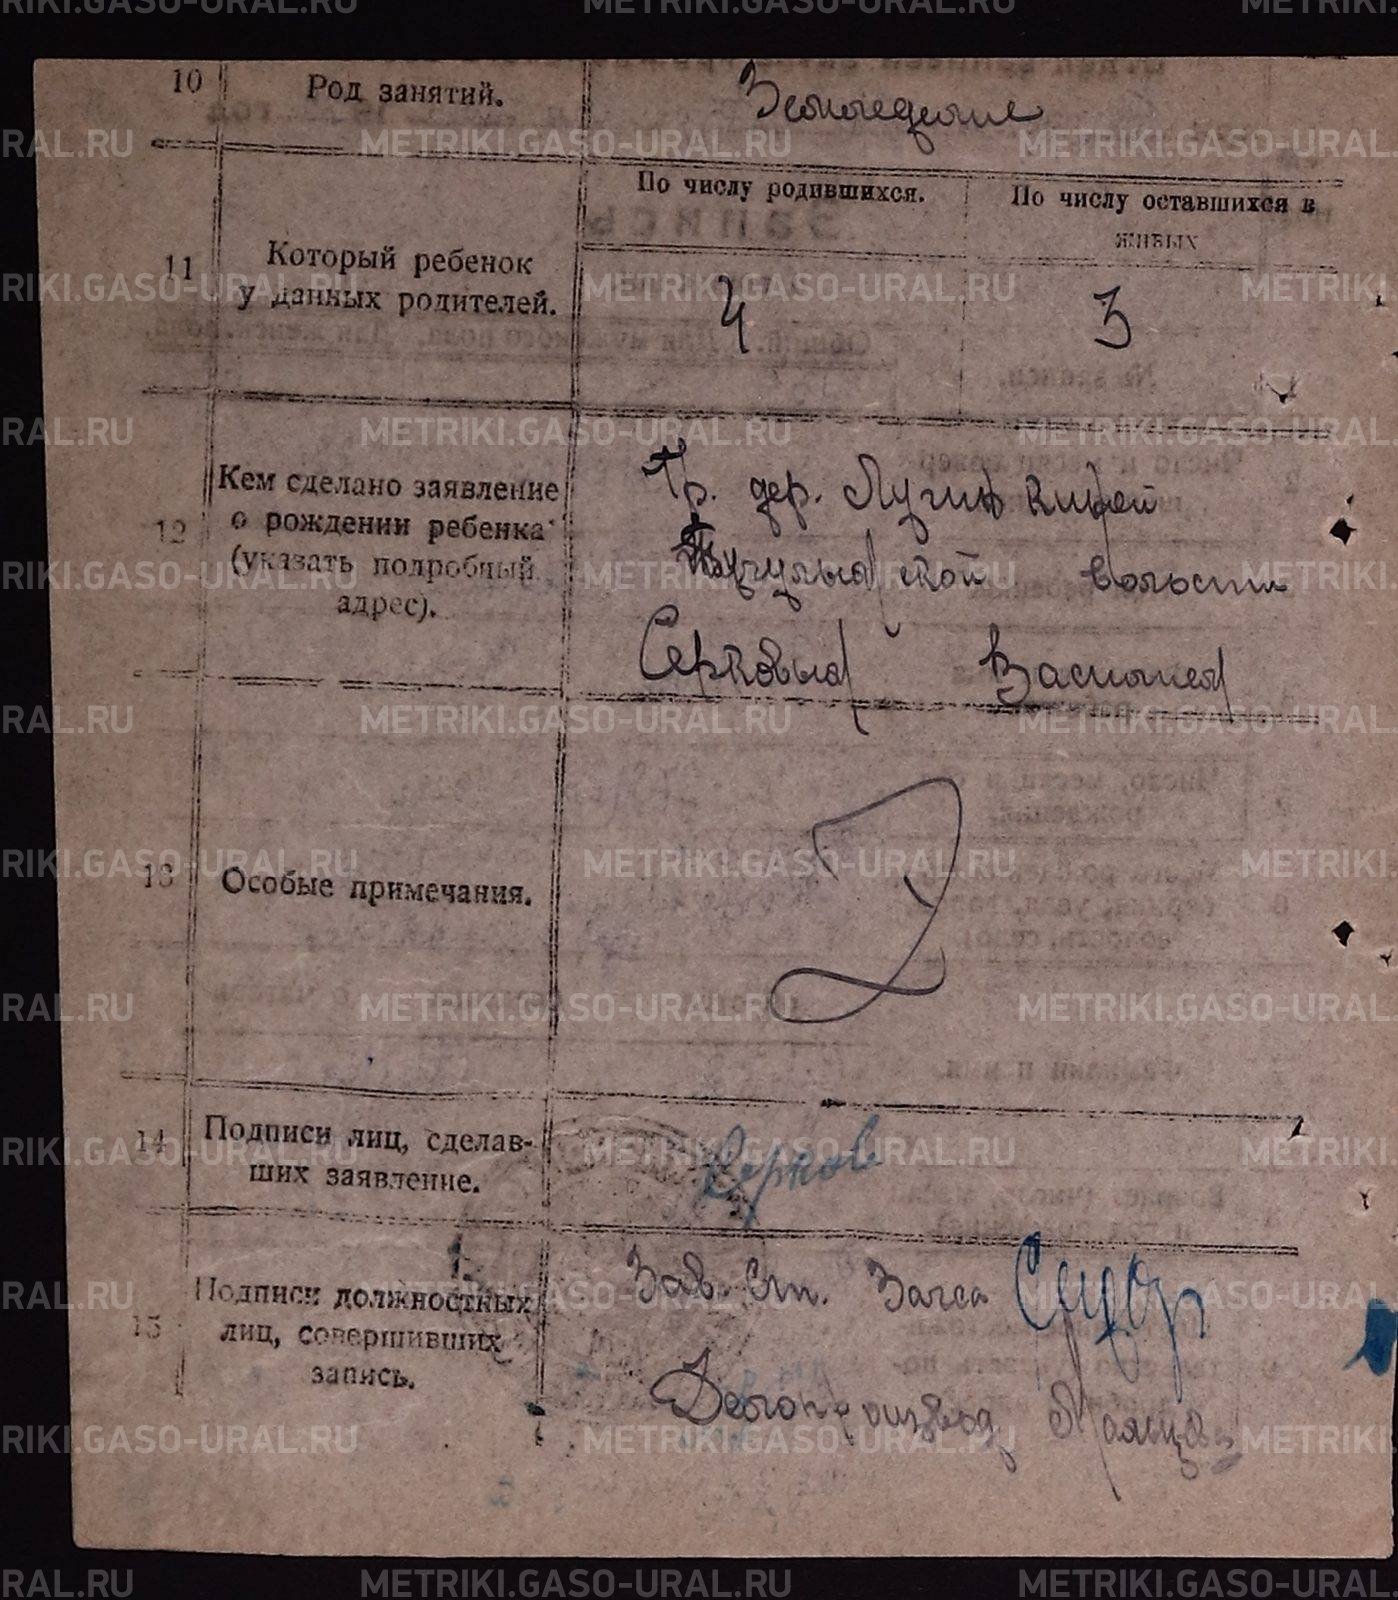 10 Род занятий. Земледелие
По числу родившихся. По числу оставшихся в
живых
11 Который ребенок
у данных родителей. 4 3
Кем сделано заявление
12 о рождении ребенка
(указать подробный
адрес).
Гр. дер.
волости
Серковым Василием
13 Особые примечания.
14 Подписи лиц, сделав-
ших заявление.
Серков
Зав. Ст. Загса
15 Подписи должностных
лиц, совершивших
запись.
Делопроизвод
METRIKI.GASO-URAL.RU